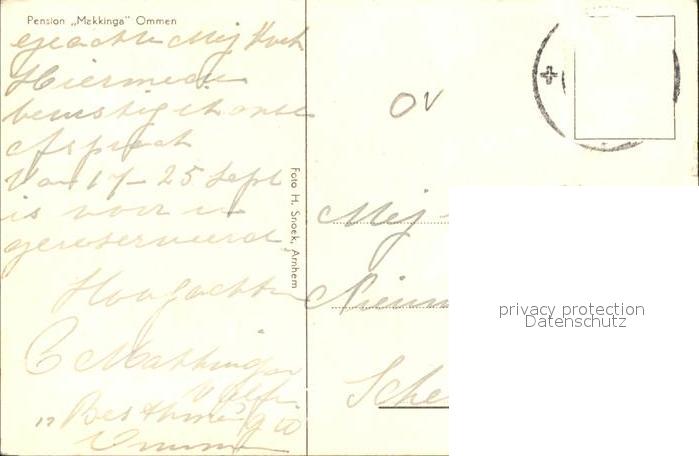 Pension „Mekkinga" Ommen
geachte Mej Hoek
Hiermede
bevestig ik onse
Afspraak
Van 17 - 25 Sept
is voor u
gereserveerd
Hoogachten
C Makkinga
Ommen
Foto H. Snoek, Arnhem
OV
Mej
Nieuw
Sche
privacy protection
Datenschutz